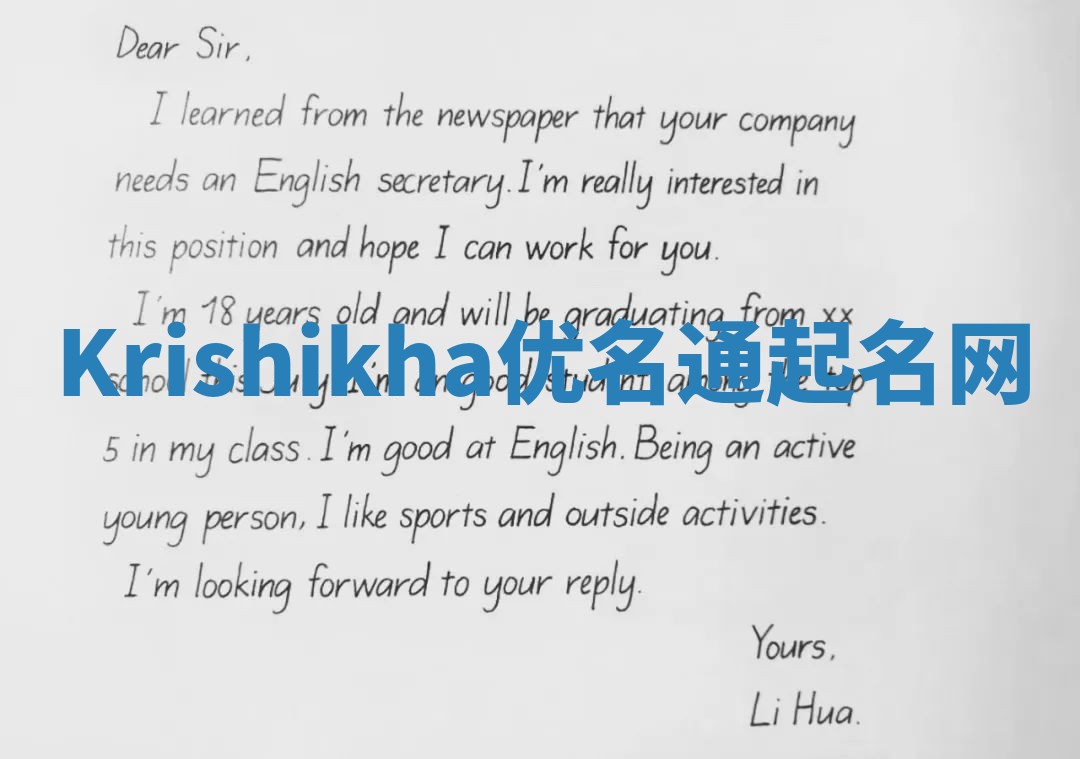 Dear Sir,
I learned from the newspaper that your company
needs an English secretary. I'm really interested in
this position and hope I can work for you.
I'm 18 years old and will be graduating from xx
Krishikha优名通起名网
school this July. I'm an good student among the top
5 in my class. I'm good at English. Being an active
young person, I like sports and outside activities.
I'm looking forward to your reply.
Yours,
Li Hua.